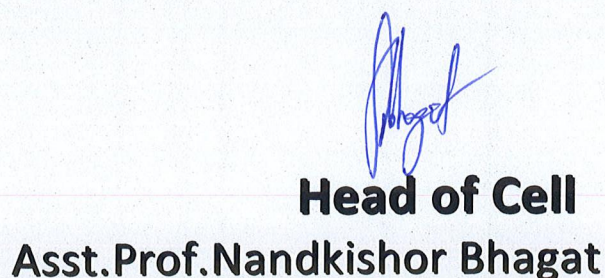 Head of Cell
Asst.Prof.Nandkishor Bhagat